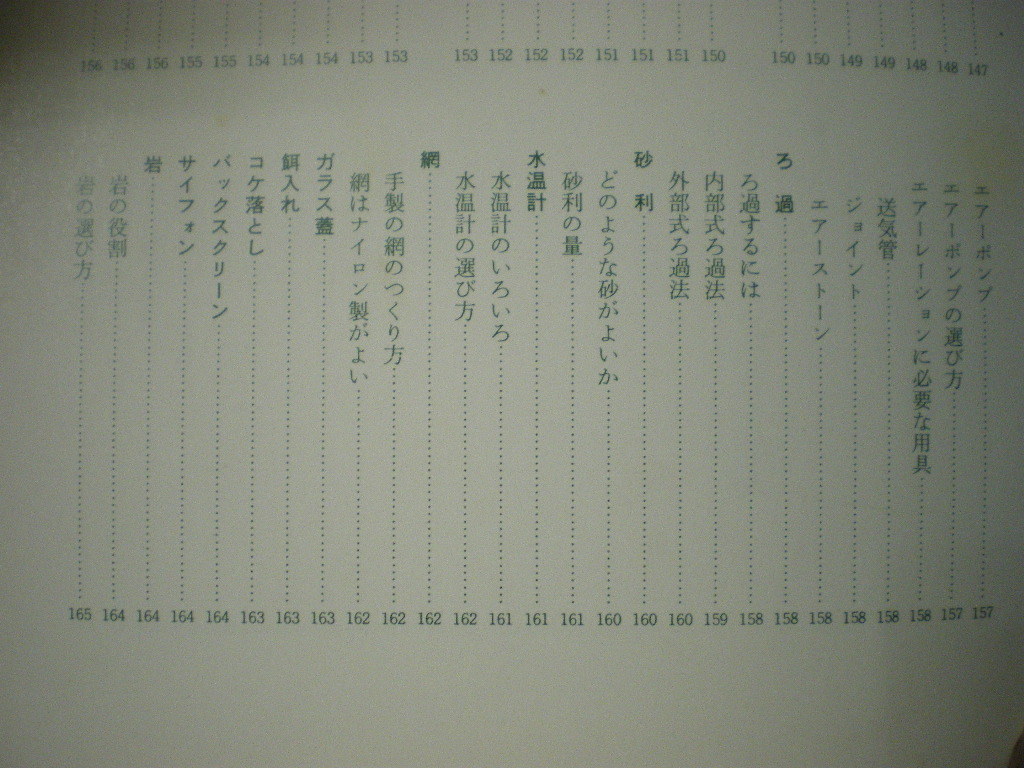 147
148
148
149
149
150
150
150
151
151
151
152
152
152
153
153
153
154
154
154
155
155
156
156
156
エアーポンプ 157
エアーポンプの選び方 157
エアーレーションに必要な用具 158
送気管 158
ジョイント 158
エアーストーン 158
ろ過 158
ろ過するには 158
内部式ろ過法 159
外部式ろ過法 160
砂利 160
どのような砂がよいか 160
砂利の量 161
水温計 161
水温計のいろいろ 161
水温計の選び方 162
網 162
手製の網のつくり方 162
網はナイロン製がよい 162
ガラス蓋 163
餌入れ 163
コケ落とし 163
バックスクリーン 164
サイフォン 164
岩 164
岩の役割 164
岩の選び方 165